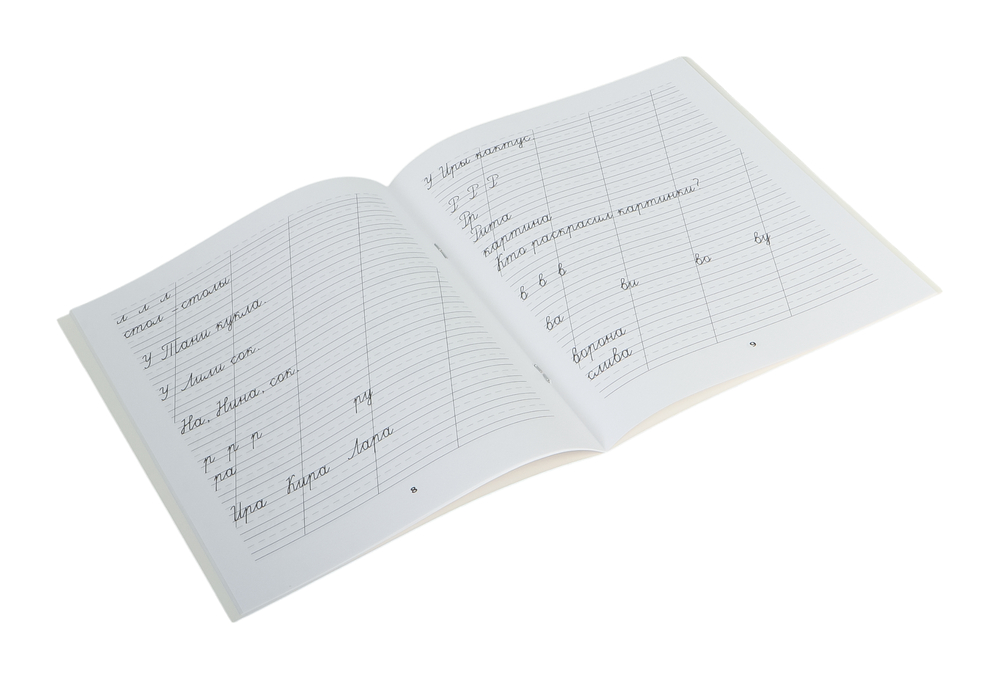 л л л
стол - столы
У Тани кукла.
У Лили сок.
На, Нина, сок.
р р р
ра ру
Ира Кира Лара
8
У Иры кактус.
Р Р Р
Рр
Рита
картина
Кто раскрасил картинки?
в в в
ва ви во ву
ворона
слива
9